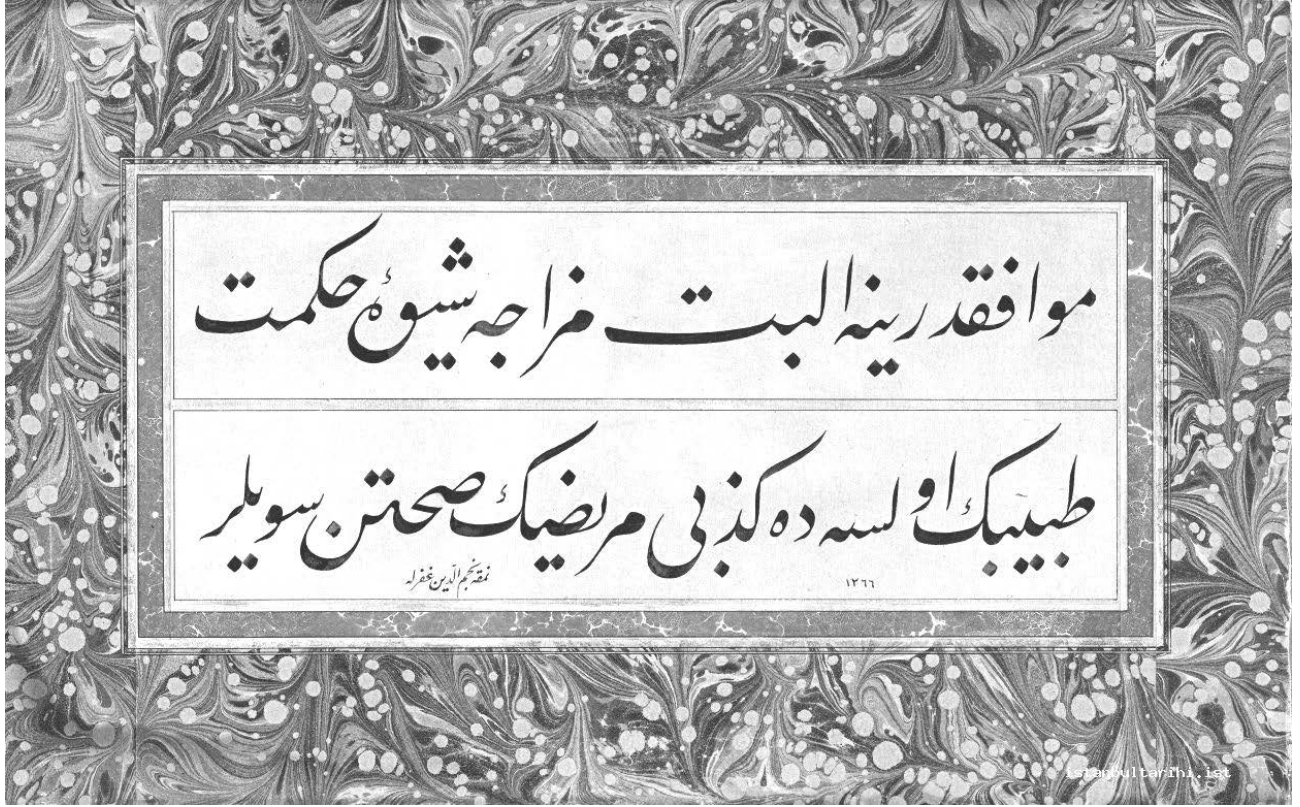 موافقدر ینه البت مزاجه شیوهٔ حکمت
طبیبك اولسه ده کذبی مریضك صحتن سویلر
نمقه نجم الدّین غفرله
١٣٦٦
istanbultarihi.ist